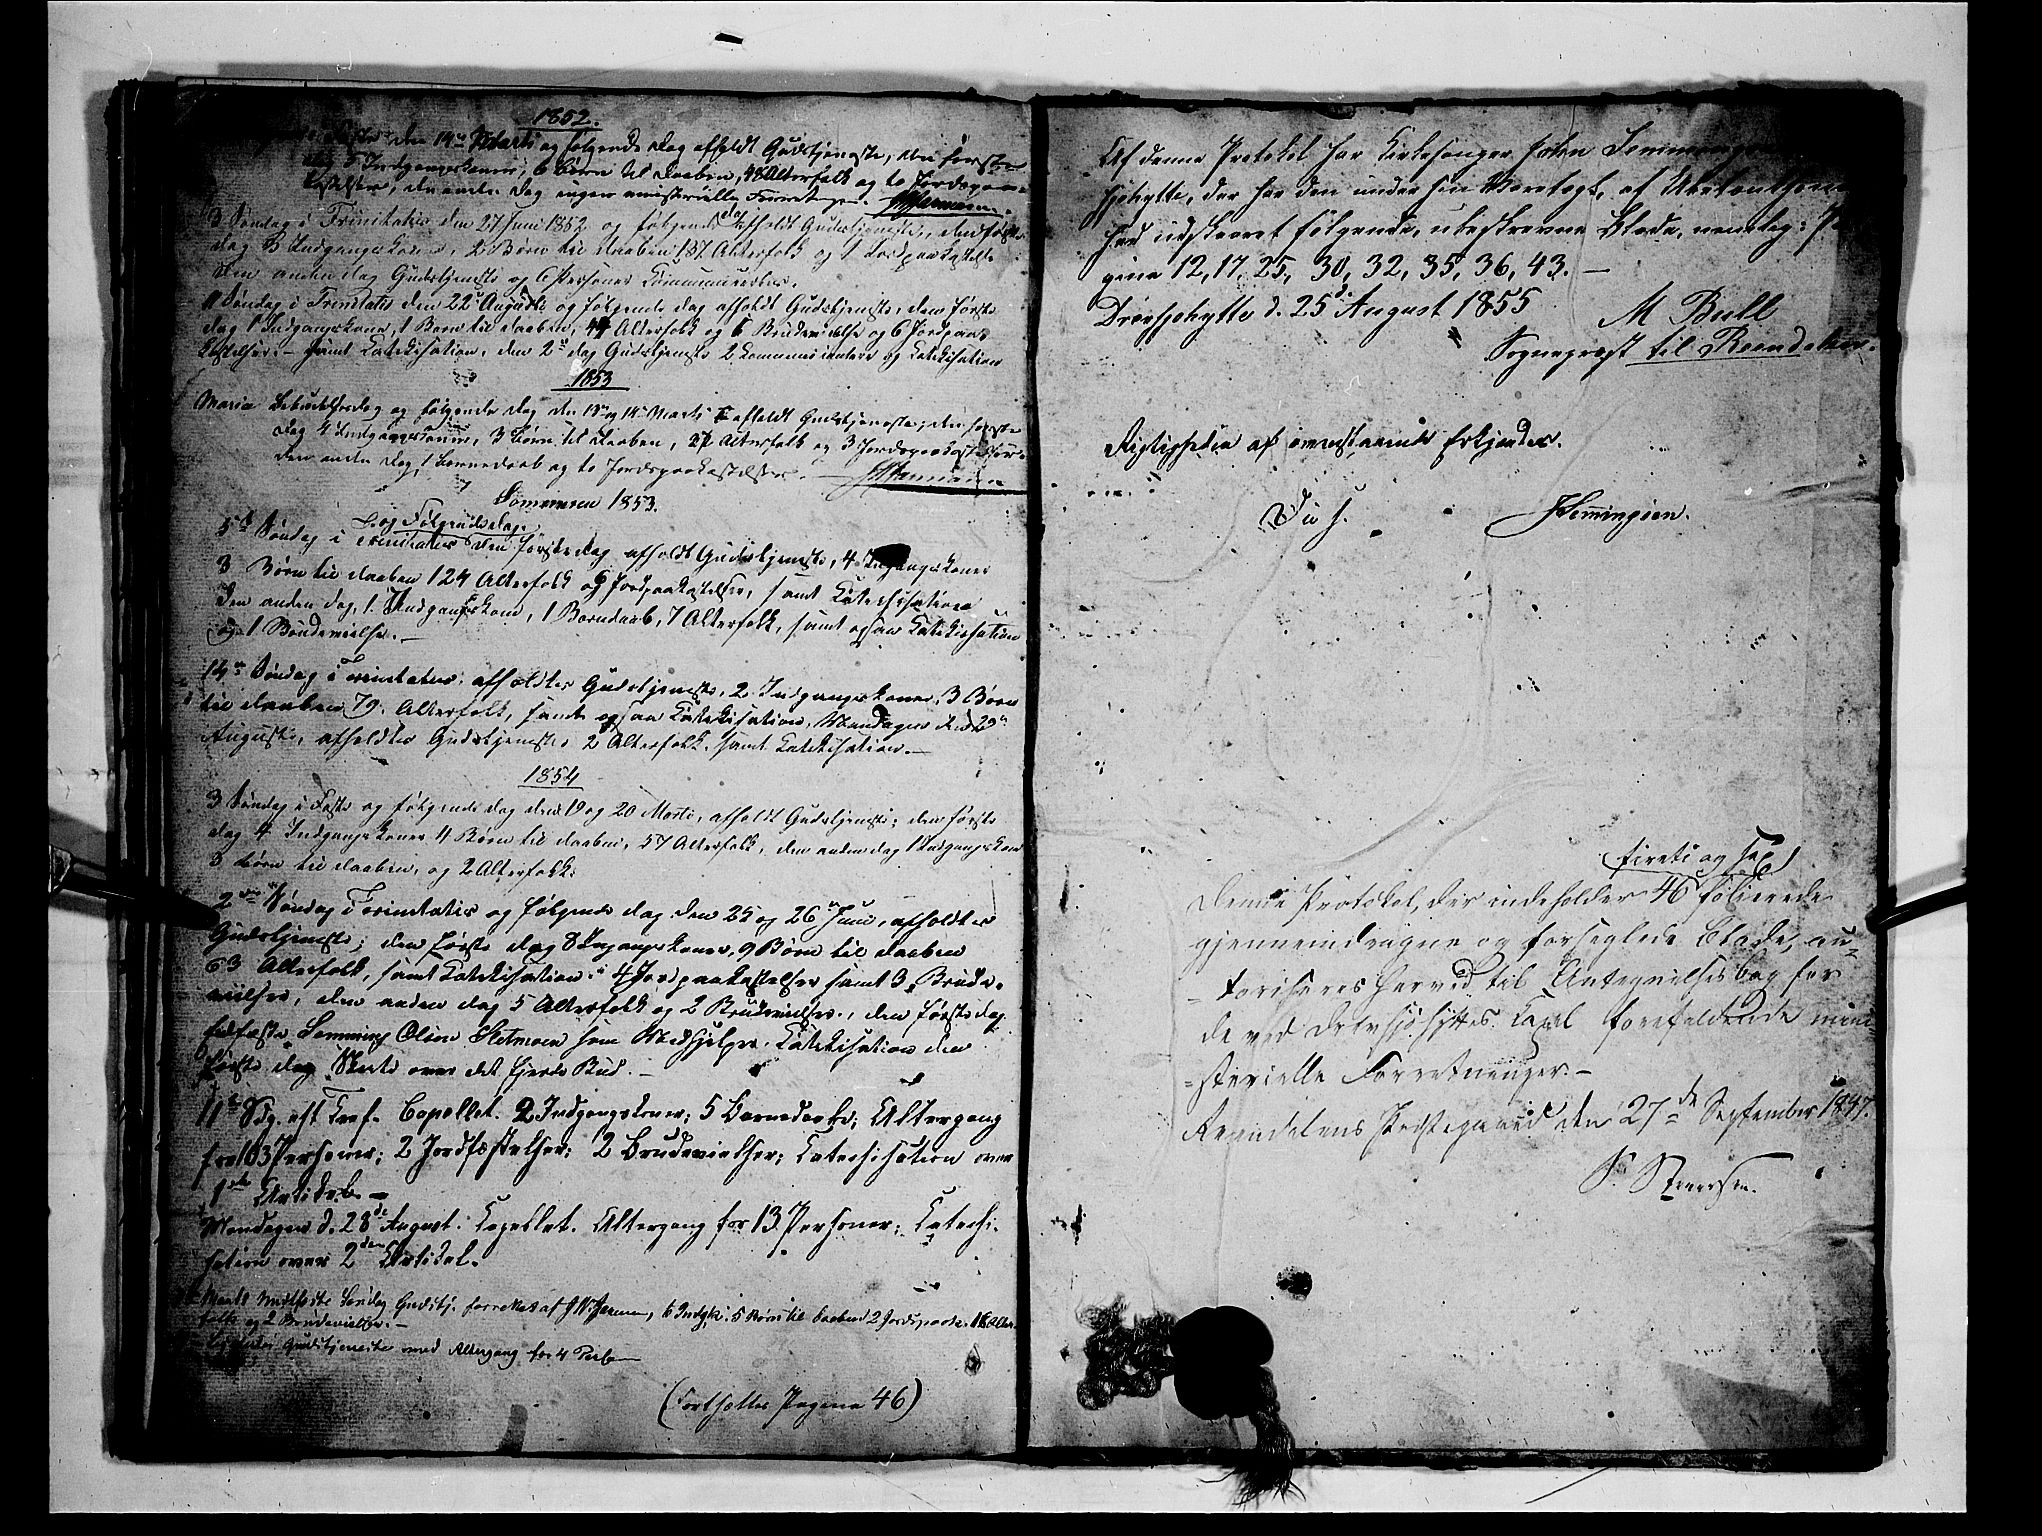 1852.
Faste den 14de Marts og følgende Dag afholdt Gudstjeneste, den første
Dag 5 Indgangskoner, 6 Børn til Daaben, 48 Alterfolk og to Jordspaa-
kastelser, den anden Dag ingen ministerielle Forretninger.
3 Søndag i Trinitatis den 27 Juni 1852 og følgende Dag afholdt Gudstjeneste, den første
dag 3 Indgangskoner, 2 Børn til Daaben, 137 Alterfolk og 1 Jordpaakastelse
den anden dag Gudstjeneste og 6 Personer
11 Søndag i Trinitatis den 22de Augusti og følgende dag afholdt Gudstjeneste, den første
dag 1 Indgangskone, 1 Barn til daaben, 44 Alterfolk og 6 Brudevielse og 6 Jordpaa-
kastelser. – samt Katekisation, den 2den dag Gudstjeneste 2 kommunicantere og Katekisation
1853
Maria Bebudelsesdag og følgende Dag den 13de og 14de Marts afholdt Gudstjeneste; den første
Dag 4 Indgangskoner, 3 Børn til Daaben, Alterfolk og 3 Jordspaakastelser.
den anden Dag, 1 Barnedaab og to Jordspaakastelser.
Sommeren 1853.
og Følgende dag.
5te Søndag i Trinitatis den første dag afholdt Gudstjeneste, 4 Ingangskoner
3 Børn til daaben 124 Alterfolk og 6 Jordpaakastelser, samt Katekisation
den anden dag, 1. Indgangskone, 1 Barndaab, 7 Alterfolk, samt ogsaa Katekisation
og 1 Brudevielse. –
14de Søndag i Trinitatis. afholdtes Gudstjeneste, 2 Indgangskoner, 3 Børn
til daaben 79. Alterfolk, samt ogsaa Katekisation, Mandagen den 29de
Augusti, afholdtes Gudstjeneste 2 Alterfolk. samt Katekisation. –
1854
3 Søndag i Faste og følgende dag den 19 og 20 Marts, afholdt Gudstjeneste; den første
dag 4 Indgangskoner 4 Børn til daaben, 57 Alterfolk, den anden dag 1 Indgangskone
3 børn til daaben, og 2 Alterfolk.
2den Søndag i Trinitatis og følgende dag den 25 og 26de Juni, afholdtes
Gudstjeneste; den første dag 8 Ingangskoner, 9 Børn til daaben
63 Alterfolk, samt Katekisation, 4 Jordpaakastelser samt 3. Brude-
vielser, den anden dag 5 Alterfolk og 2 Brudevielser., den første dag
Lemming Olsen som Medhjelper. Katekisation den
første dag over det fjerde Bud. –
11te Sdg. eft Tref. Capellet. 2 Indgangskoner; 5 Barnedaabe; Altergang
for 103 Personer; 2 Jordfæstelser; 2 Brudevielser; Catechisation over
1ste Artikel. –
Mandagen d. 28de August. Capellet. Altergang for 13 Personer; Catechi-
sation over 2den Artikel.
Marts Midfaste Søndag Gudstj. forrettet af, 6 Indgk. 5 Børn til Daaben 2 Jordspaak. 16 Alter-
folk og 2 Brudevielse. –
Gudstjeneste med Altergang for 4 Pers.
(Fortsættes Pagina 46)
Af denne Protokol har Kirkesanger Lemmingsen
, der har den under sin Varetægt, af
had udskaaret følgende, ubeskrevne Blade, nemlig: Pa-
gina 12, 17, 25, 30, 32, 35, 36, 43. –
d. 25de August 1855
M Bull
Sognepræst til Reendalen.
Rigtigheden af ovenstaaende Erkjendes.
Hemingsen.
fireti og sex
Denne Protokol, der indeholder 46 folierede
gjennemdragne og forseglede Blade, au-
toriseres herved til Antegnelsesbog for
de ved Capel forefaldende mini-
sterielle Forretninger. –
den 27de September 1847.
S. Stenersen.